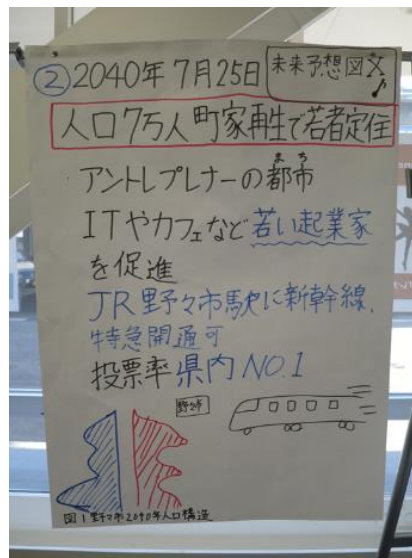 ② 2040年7月25日
未来予想図X♪
人口7万人町家再生で若者定住
アントレプレナーの都市
まち
ITやカフェなど若い起業家
を促進
JR野々市駅に新幹線、
特急開通可
投票率県内NO.1
野々市
図1 野々市2040年人口構造